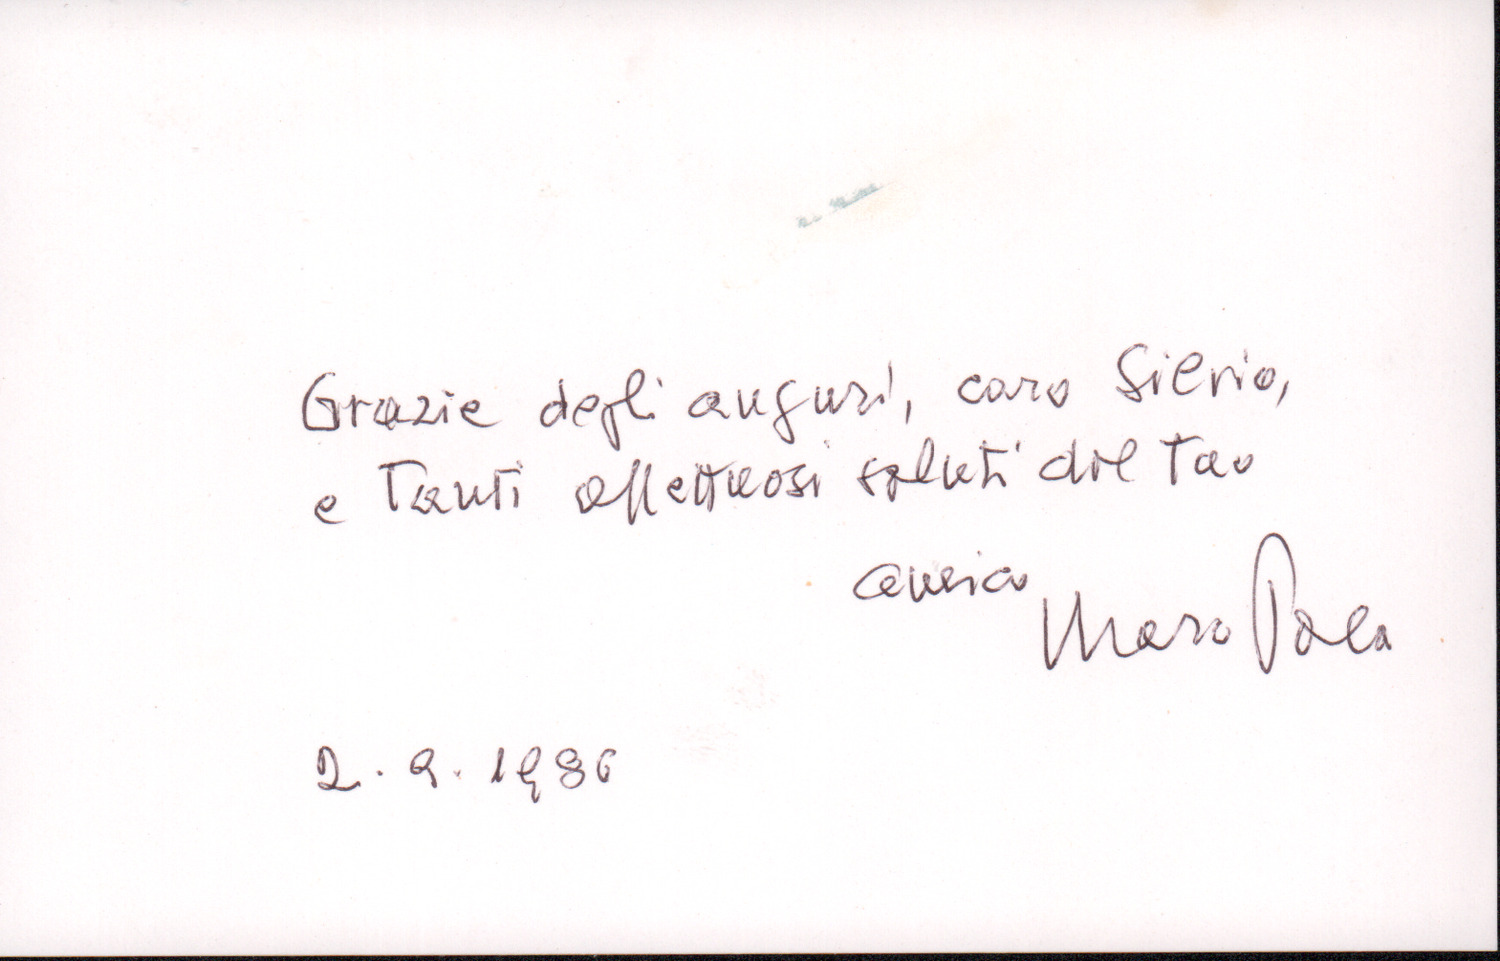 Grazie degli auguri, caro Silvio,
e tanti affettuosi saluti dal tuo
amico
Mario Pola
2.9.1986